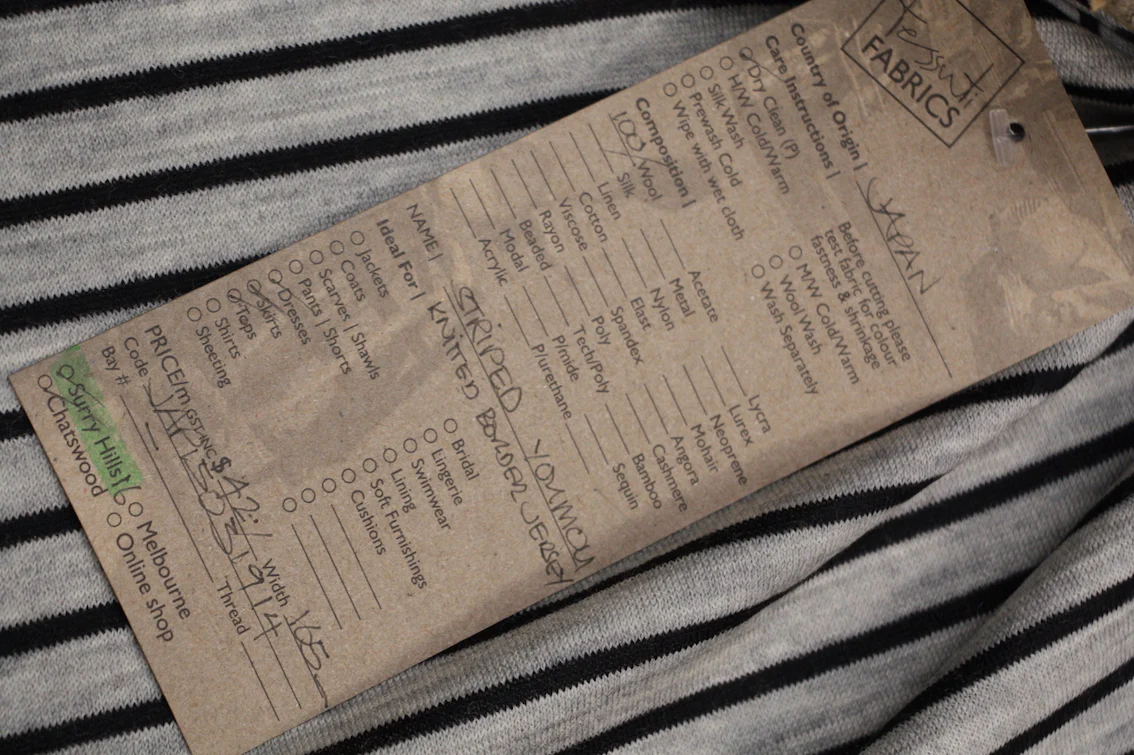 Tessuti
FABRICS
Country of Origin | JAPAN
Care Instructions |
Dry Clean (P)
H/W Cold/Warm
Silk Wash
Prewash Cold
Wipe with wet cloth
Before cutting please
test fabric for colour
fastness & shrinkage
M/W Cold/Warm
Wool Wash
Wash Separately
Composition |
100/ Wool
Silk
Linen
Cotton
Viscose
Rayon
Beaded
Modal
Acrylic
Acetate
Metal
Nylon
Elast
Spandex
Poly
Tech/Poly
P/mide
P/urethane
Lycra
Lurex
Neoprene
Mohair
Angora
Cashmere
Bamboo
Sequin
NAME | STRIPED
KNITTED BORDER JERSEY
Ideal For |
Jackets
Coats
Scarves | Shawls
Pants | Shorts
Dresses
Skirts
Tops
Shirts
Sheeting
Bridal
Lingerie
Swimwear
Lining
Soft Furnishings
Cushions
PRICE/m GST INC $42.- Width 165
Code Thread
Bay #
Surry Hills
Chatswood
Melbourne
Online shop